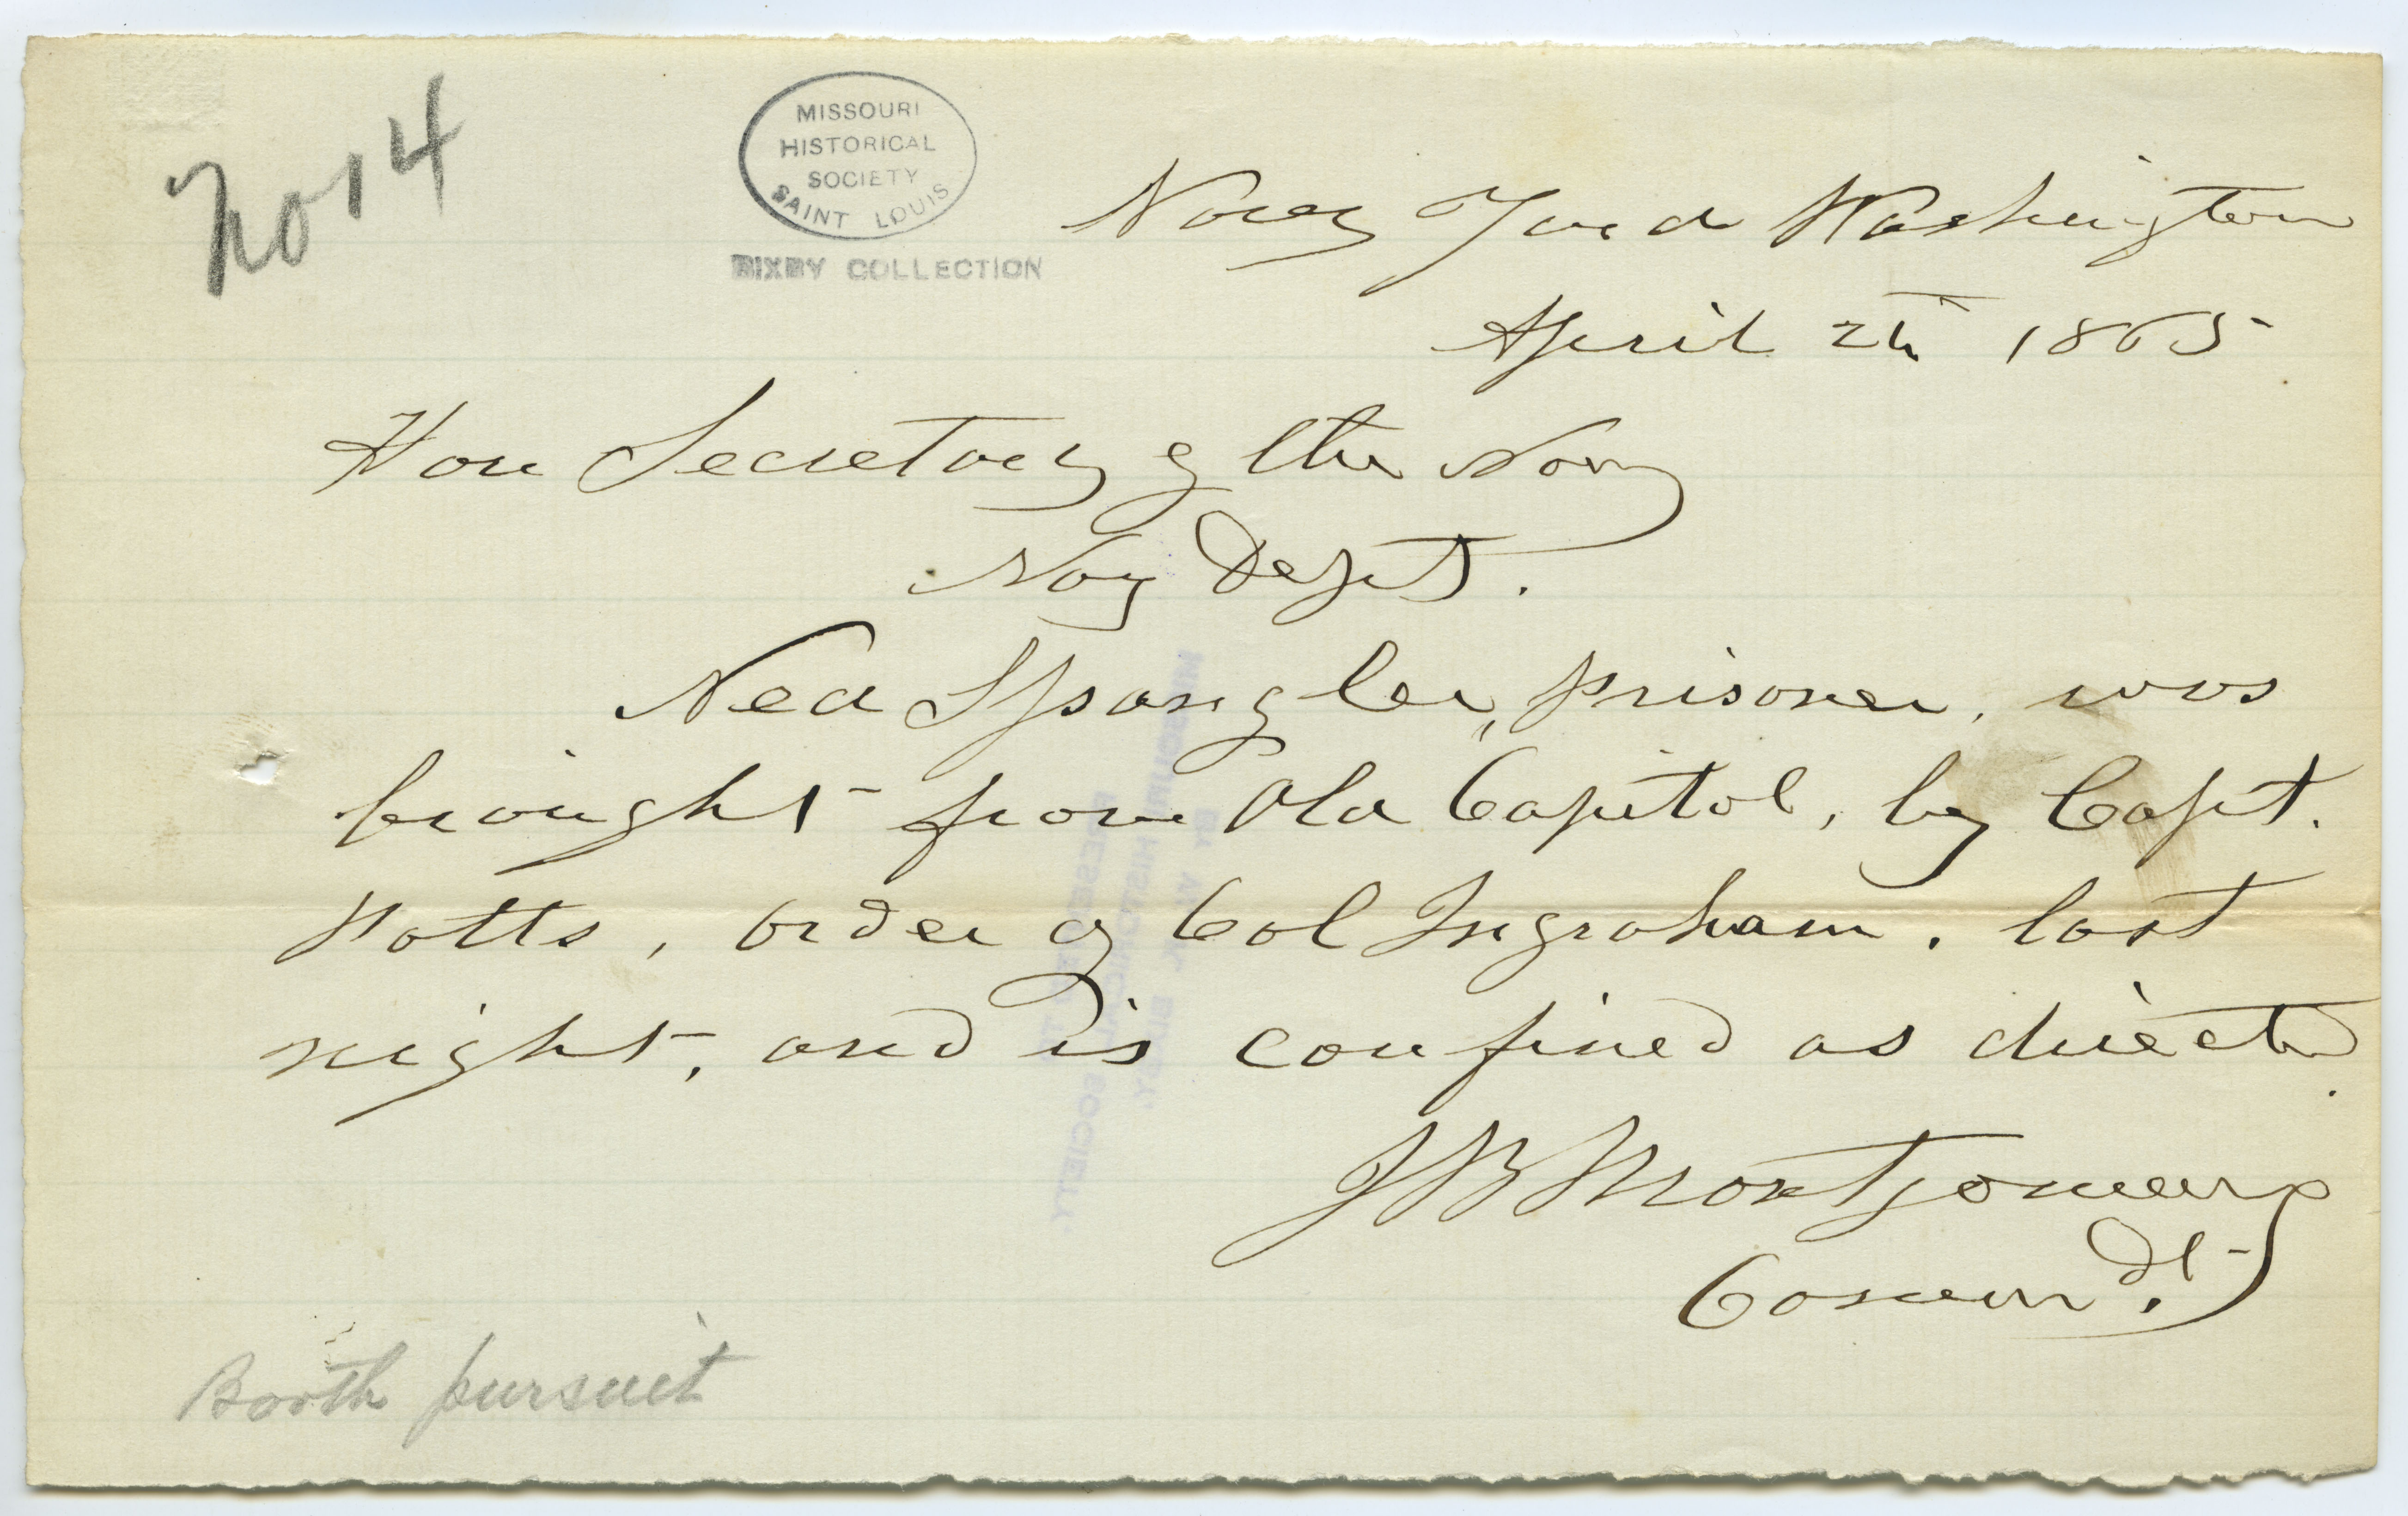 No 14
MISSOURI
HISTORICAL
SOCIETY
SAINT LOUIS
BIXBY COLLECTION
Navy Yard Washington
April 1865
Hon Secretary of the Navy
Navy Dept.
Ned Spangler, prisoner, was
brought from Old Capitol, by Capt.
Potts, order of Col Ingraham, last
night, and is confined as directed.
J B Montgomery
Comm dt.
Booth pursuit